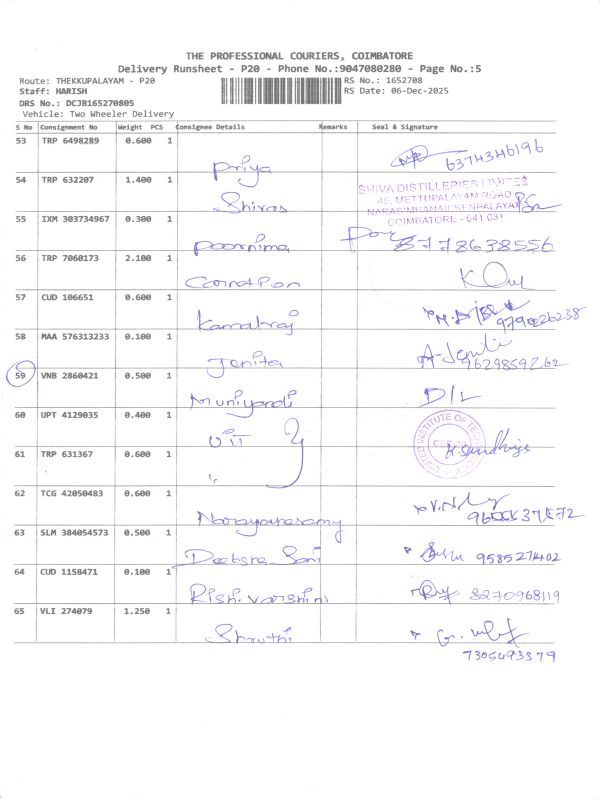 THE PROFESSIONAL COURIERS, COIMBATORE
Delivery Runsheet - P20 - Phone No.:9047080280 - Page No.:5
Route: THEKKUPALAYAM - P20 RS No.: 1652708
Staff: HARISH RS Date: 06-Dec-2025
DRS No.: DCJB165270805
Vehicle: Two Wheeler Delivery
S No Consignment No Weight PCS Consignee Details Remarks Seal & Signature
53 TRP 6498289 0.600 1
Priya 6374346196
54 TRP 632207 1.400 1
SHIVA DISTILLERIES LIMITED
45, METTUPALAYAM ROAD
NARASIMHANAICKENPALAYAM
COIMBATORE - 641 031
Shivas
55 IXM 303734967 0.300 1
Poornima 8778638556
56 TRP 7060173 2.100 1
57 CUD 106651 0.600 1
Kamalraj 9790026238
58 MAA 576313233 0.100 1
Jenita A-Jeniti
59 VNB 2860421 0.500 1
Muniyandi D/L
60 UPT 4129035 0.400 1
UIT
UNITED INSTITUTE OF
61 TRP 631367 0.600 1
K. Sandhiya
62 TCG 42050483 0.600 1
Narayanasamy
63 SLM 384054573 0.500 1
9585271402
64 CUD 1158471 0.100 1
Rishi varshini 8270968119
65 VLI 274079 1.250 1
Shruthi
7305493379